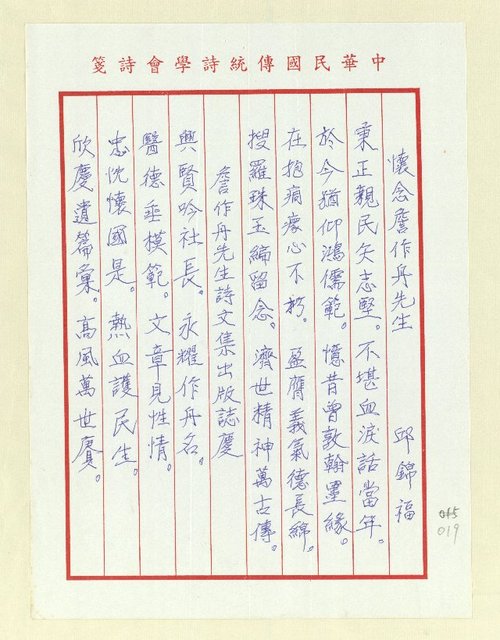 中華民國傳統詩學會詩箋
懷念詹作舟先生 邱錦福
秉正親民矢志堅。不堪血淚話當年。
於今猶仰鴻儒範。憶昔曾敦翰墨緣。
在抱痌瘝心不朽。盈膺義氣德長綿。
搜羅珠玉編留念。濟世精神萬古傳。
詹作舟先生詩文集出版誌慶
興賢吟社長。永耀作舟名。
醫德垂模範。文章見性情。
忠忱懷國是。熱血護民生。
欣慶遺篇彙。高風萬世賡。
015
019